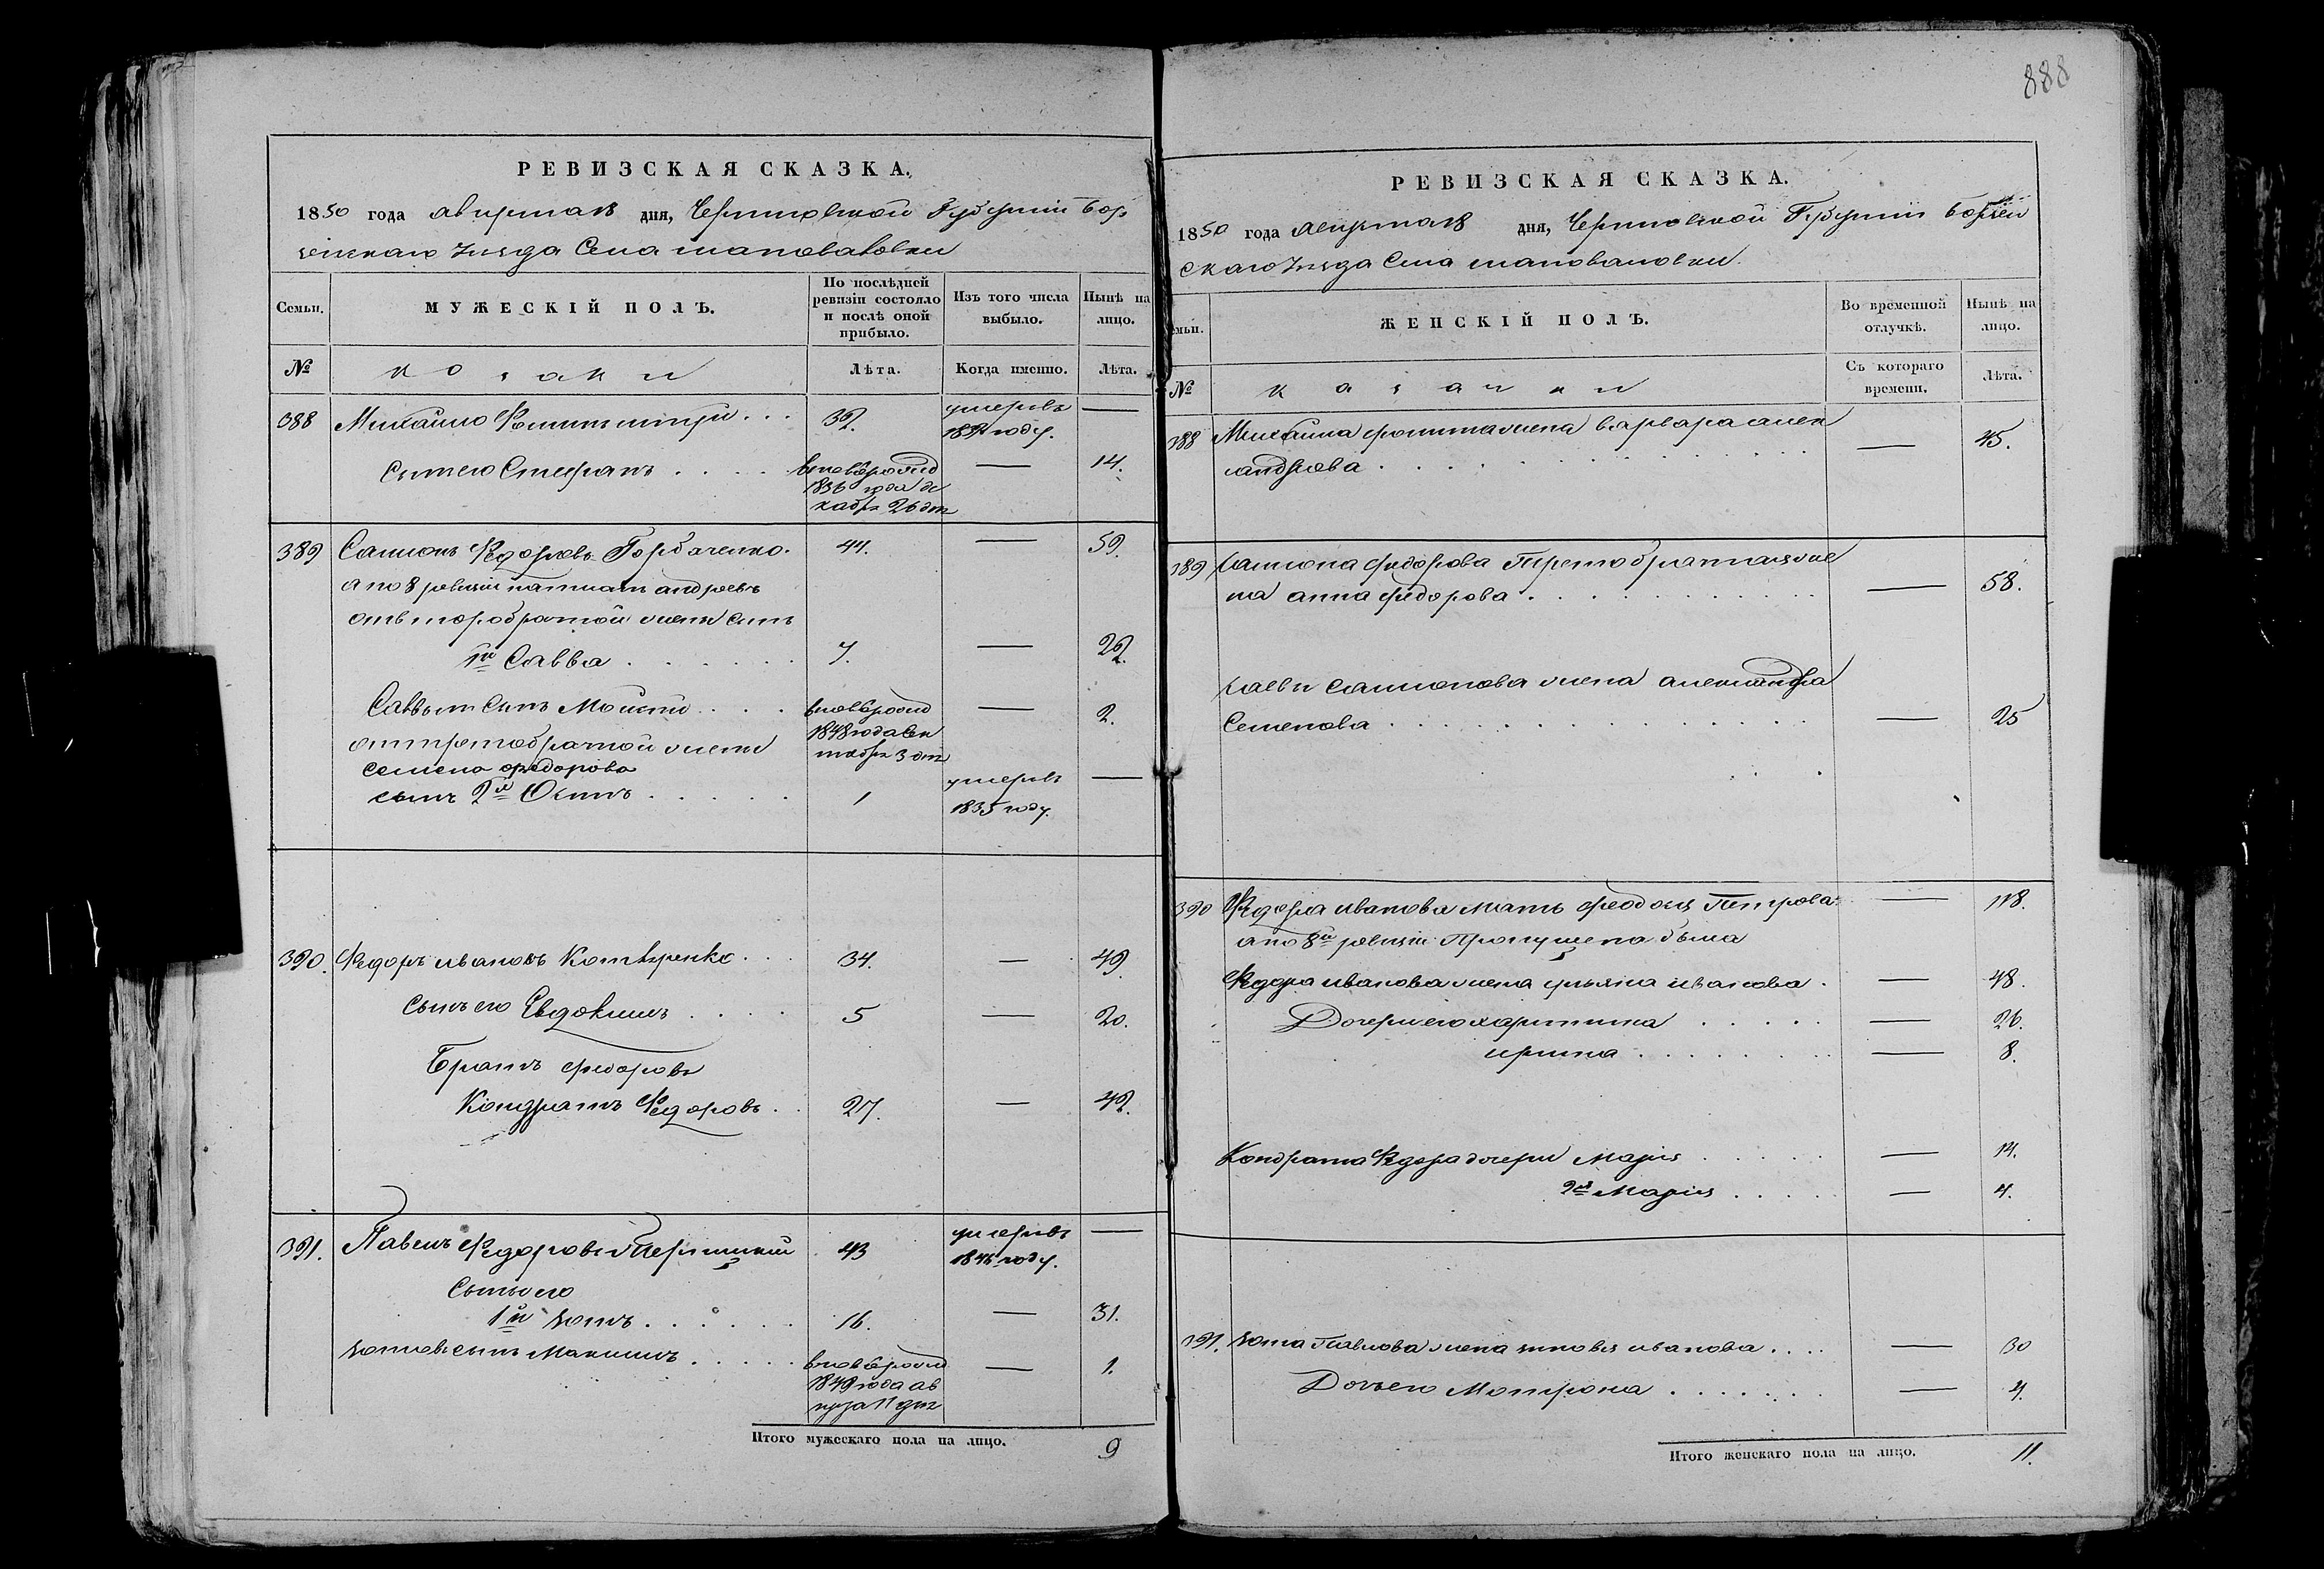 888
РЕВИЗСКАЯ СКАЗКА.
1850 года августа 18 дня, Черниговской Губерніи Бор
зенскаго Уезда Села Шаповаловки
Семьи.
МУЖЕСКІЙ ПОЛЪ.
По послѣдней ревизіи состояло и послѣ оной прибыло.
Изъ того числа выбыло.
Нынѣ на лицо.
№
козаки
Лѣта.
Когда именно.
Лѣта.
388 Михайло 32. умеръ въ —
году.
сынъ его Стефанъ вновь рожд — 14.
1836 года де
кабря 26 дня
389 Самсонъ Федоровъ Горбаченко. 44. — 59.
а по 8 ревизіи андреевъ
отъ второбрачной жены сынъ
1й Савва 7. — 22.
Саввы сынъ Мойсей вновь рожд — 2.
1848 года сен
отъ третобрачной жены тября 3 дня
федорова
сынъ 2й Осипъ 1 умеръ въ —
1835 году.
390. Федоръ ивановъ 34. — 49.
сынъ его Евдокимъ 5 — 20.
Братъ федоровъ
Кондратъ Федоровъ 27. — 42.
391. Павелъ Федоровъ 43 умеръ въ —
году.
сынъ его
1й зотъ 16. — 31.
зотовъ сынъ Максимъ вновь рожд — 1.
1849 года ав
густа 11 дня
Итого мужескаго пола на лицо. 9
РЕВИЗСКАЯ СКАЗКА.
1850 года августа 18 дня, Черниговской Губерніи Борзен
скаго Уезда Села Шаповаловки.
Семьи.
ЖЕНСКІЙ ПОЛЪ.
Во временной отлучкѣ.
Нынѣ на лицо.
№
казачки
Съ котораго времени.
Лѣта.
388 Михайла жена варвара алек
сандрова — 45.
389 самсона федорова Третобрачная же
на анна федорова — 58.
савы самсонова жена александра
Семенова — 25
390 Федора иванова мать феодосія Петрова — 118.
а по 8й ревизіи Пропущена была
Федора иванова жена ульяна иванова — 48.
Дочери его харитина — 26.
ирина — 8.
Кондрата Федора дочери Марія — 14.
2я Марія — 4.
391. зота Павлова жена зиновія иванова — 30
Дочь его Мотрона — 4.
Итого женскаго пола на лицо. 11.